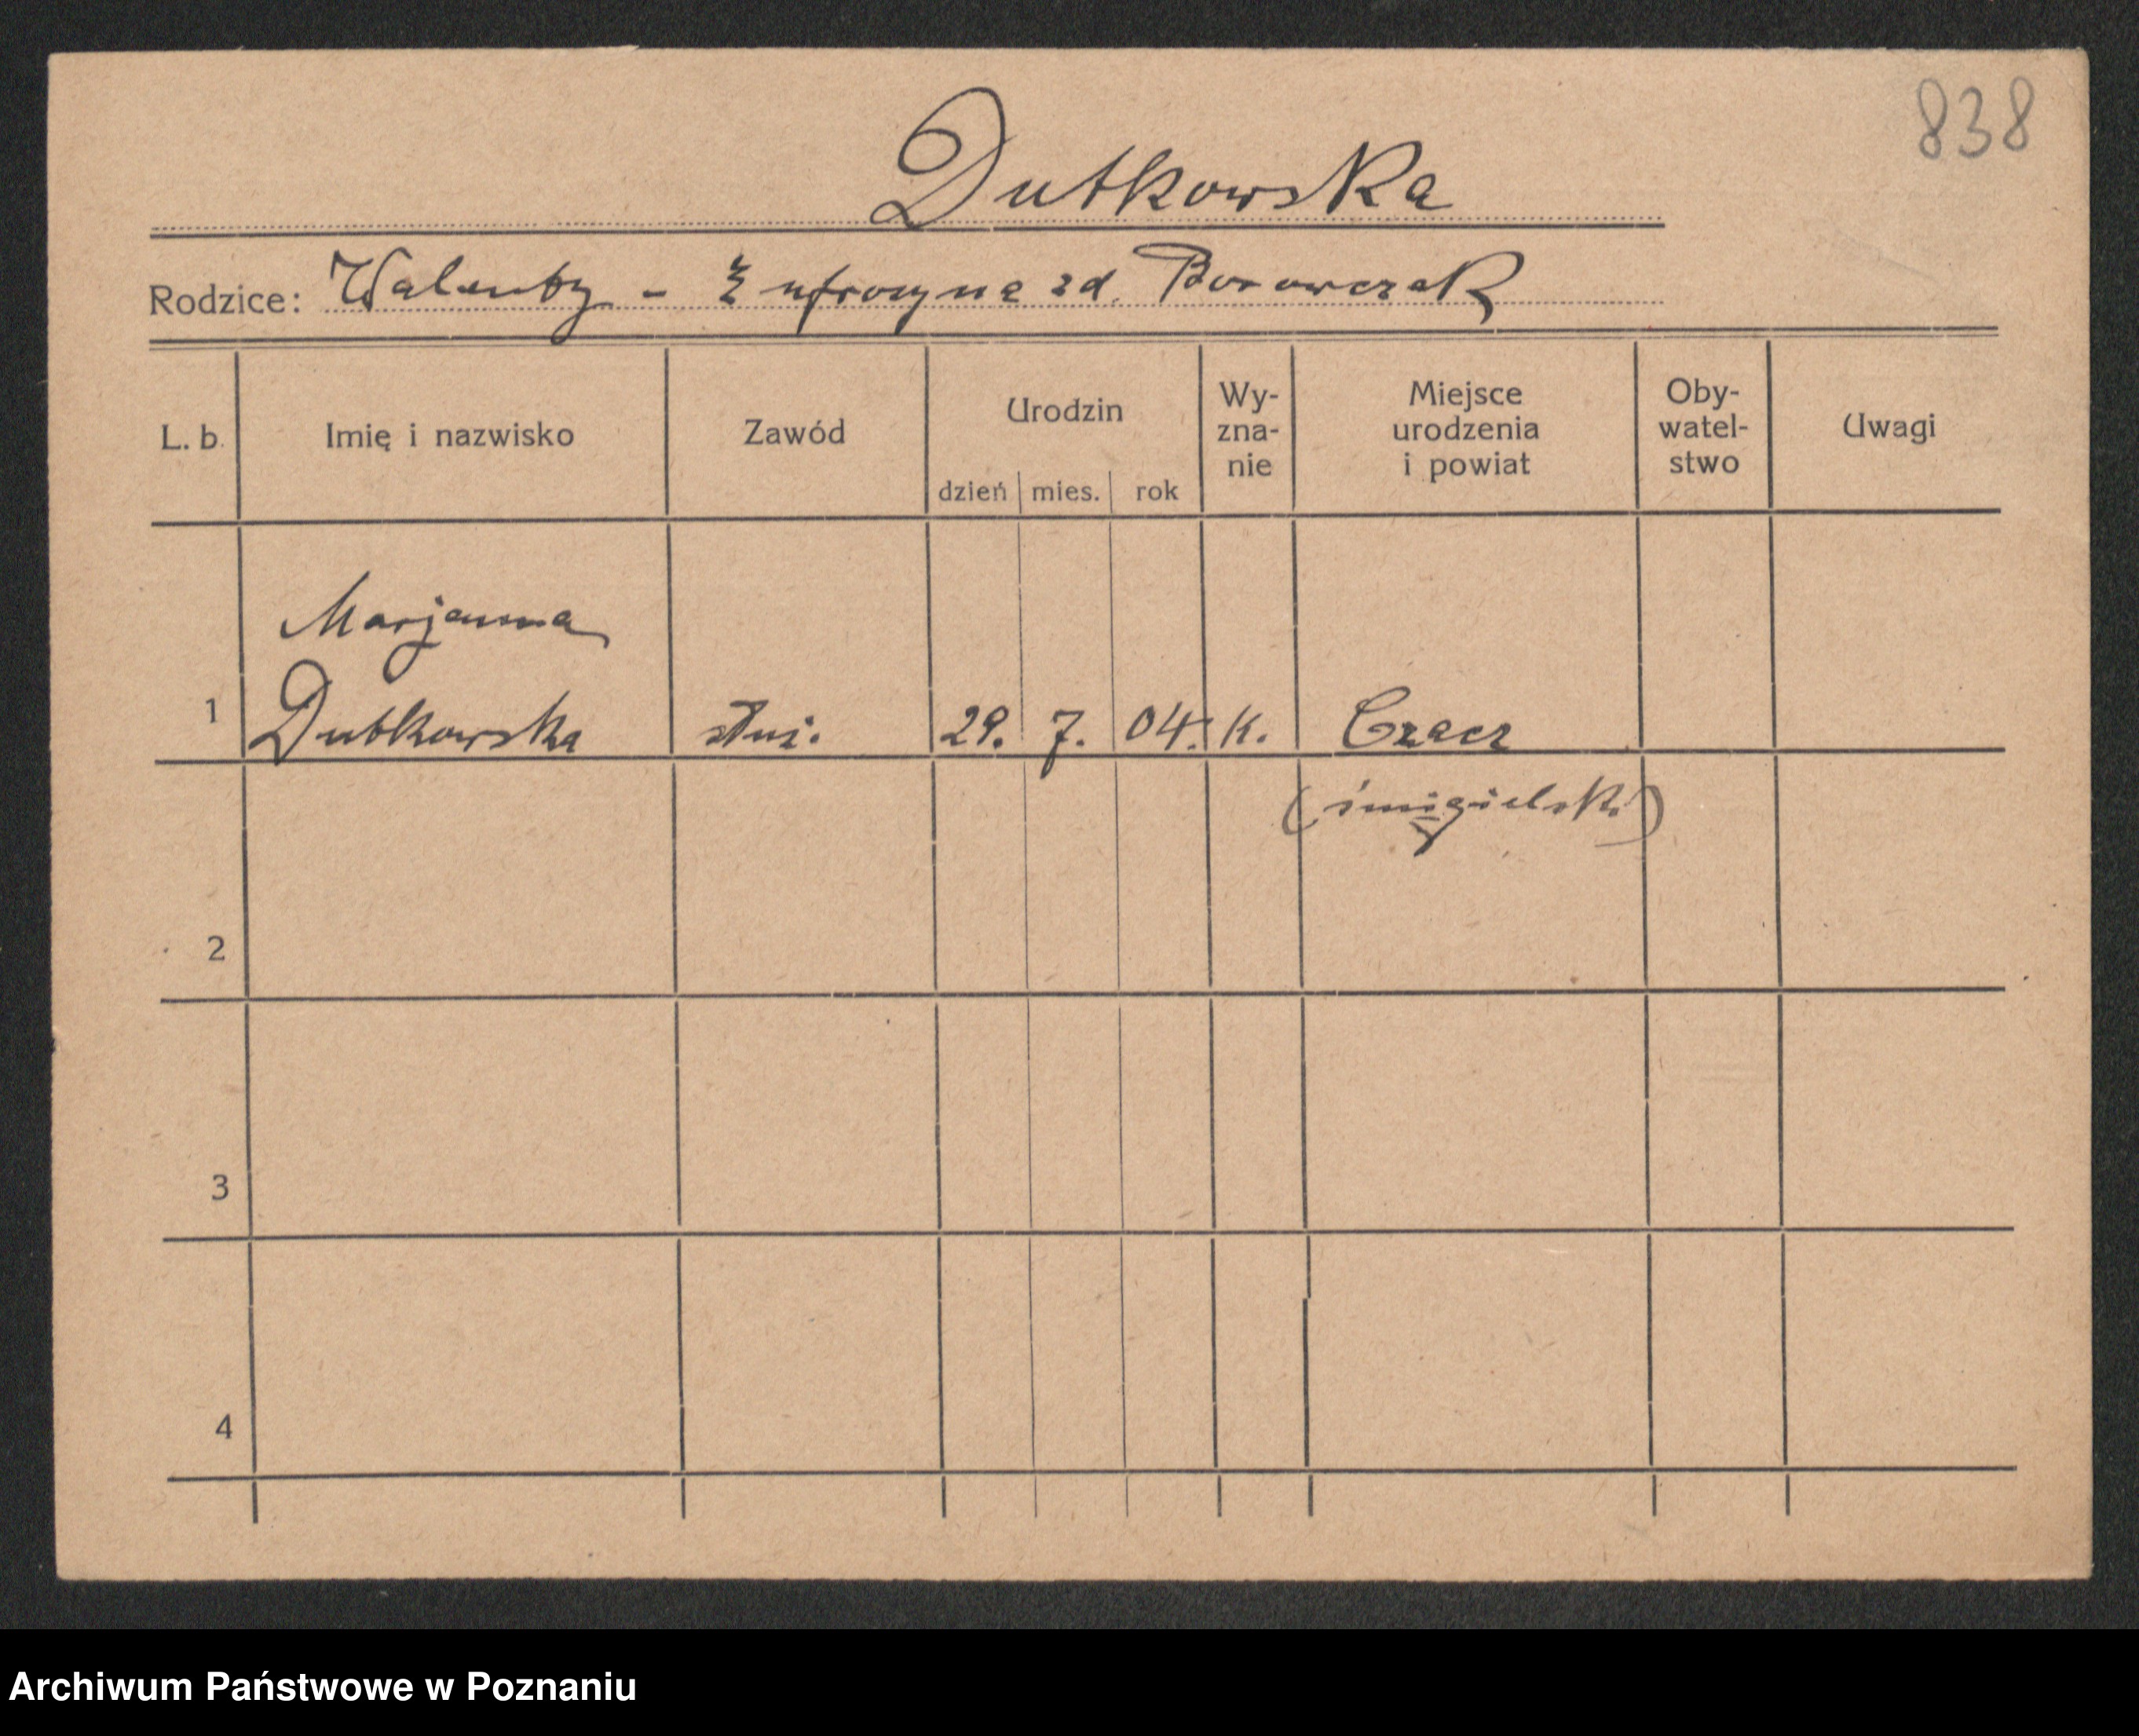 838
Dutkowska
Rodzice: Walenty - Eufrozyna zd. Borowczak
L. b. Imię i nazwisko Zawód Urodzin dzień mies. rok Wy-zna-nie Miejsce urodzenia i powiat Oby-watel-stwo Uwagi
Marjanna
1 Dutkowska służ. 29. 7. 04. K. Czacz
(śmigielski)
2
3
4
Archiwum Państwowe w Poznaniu